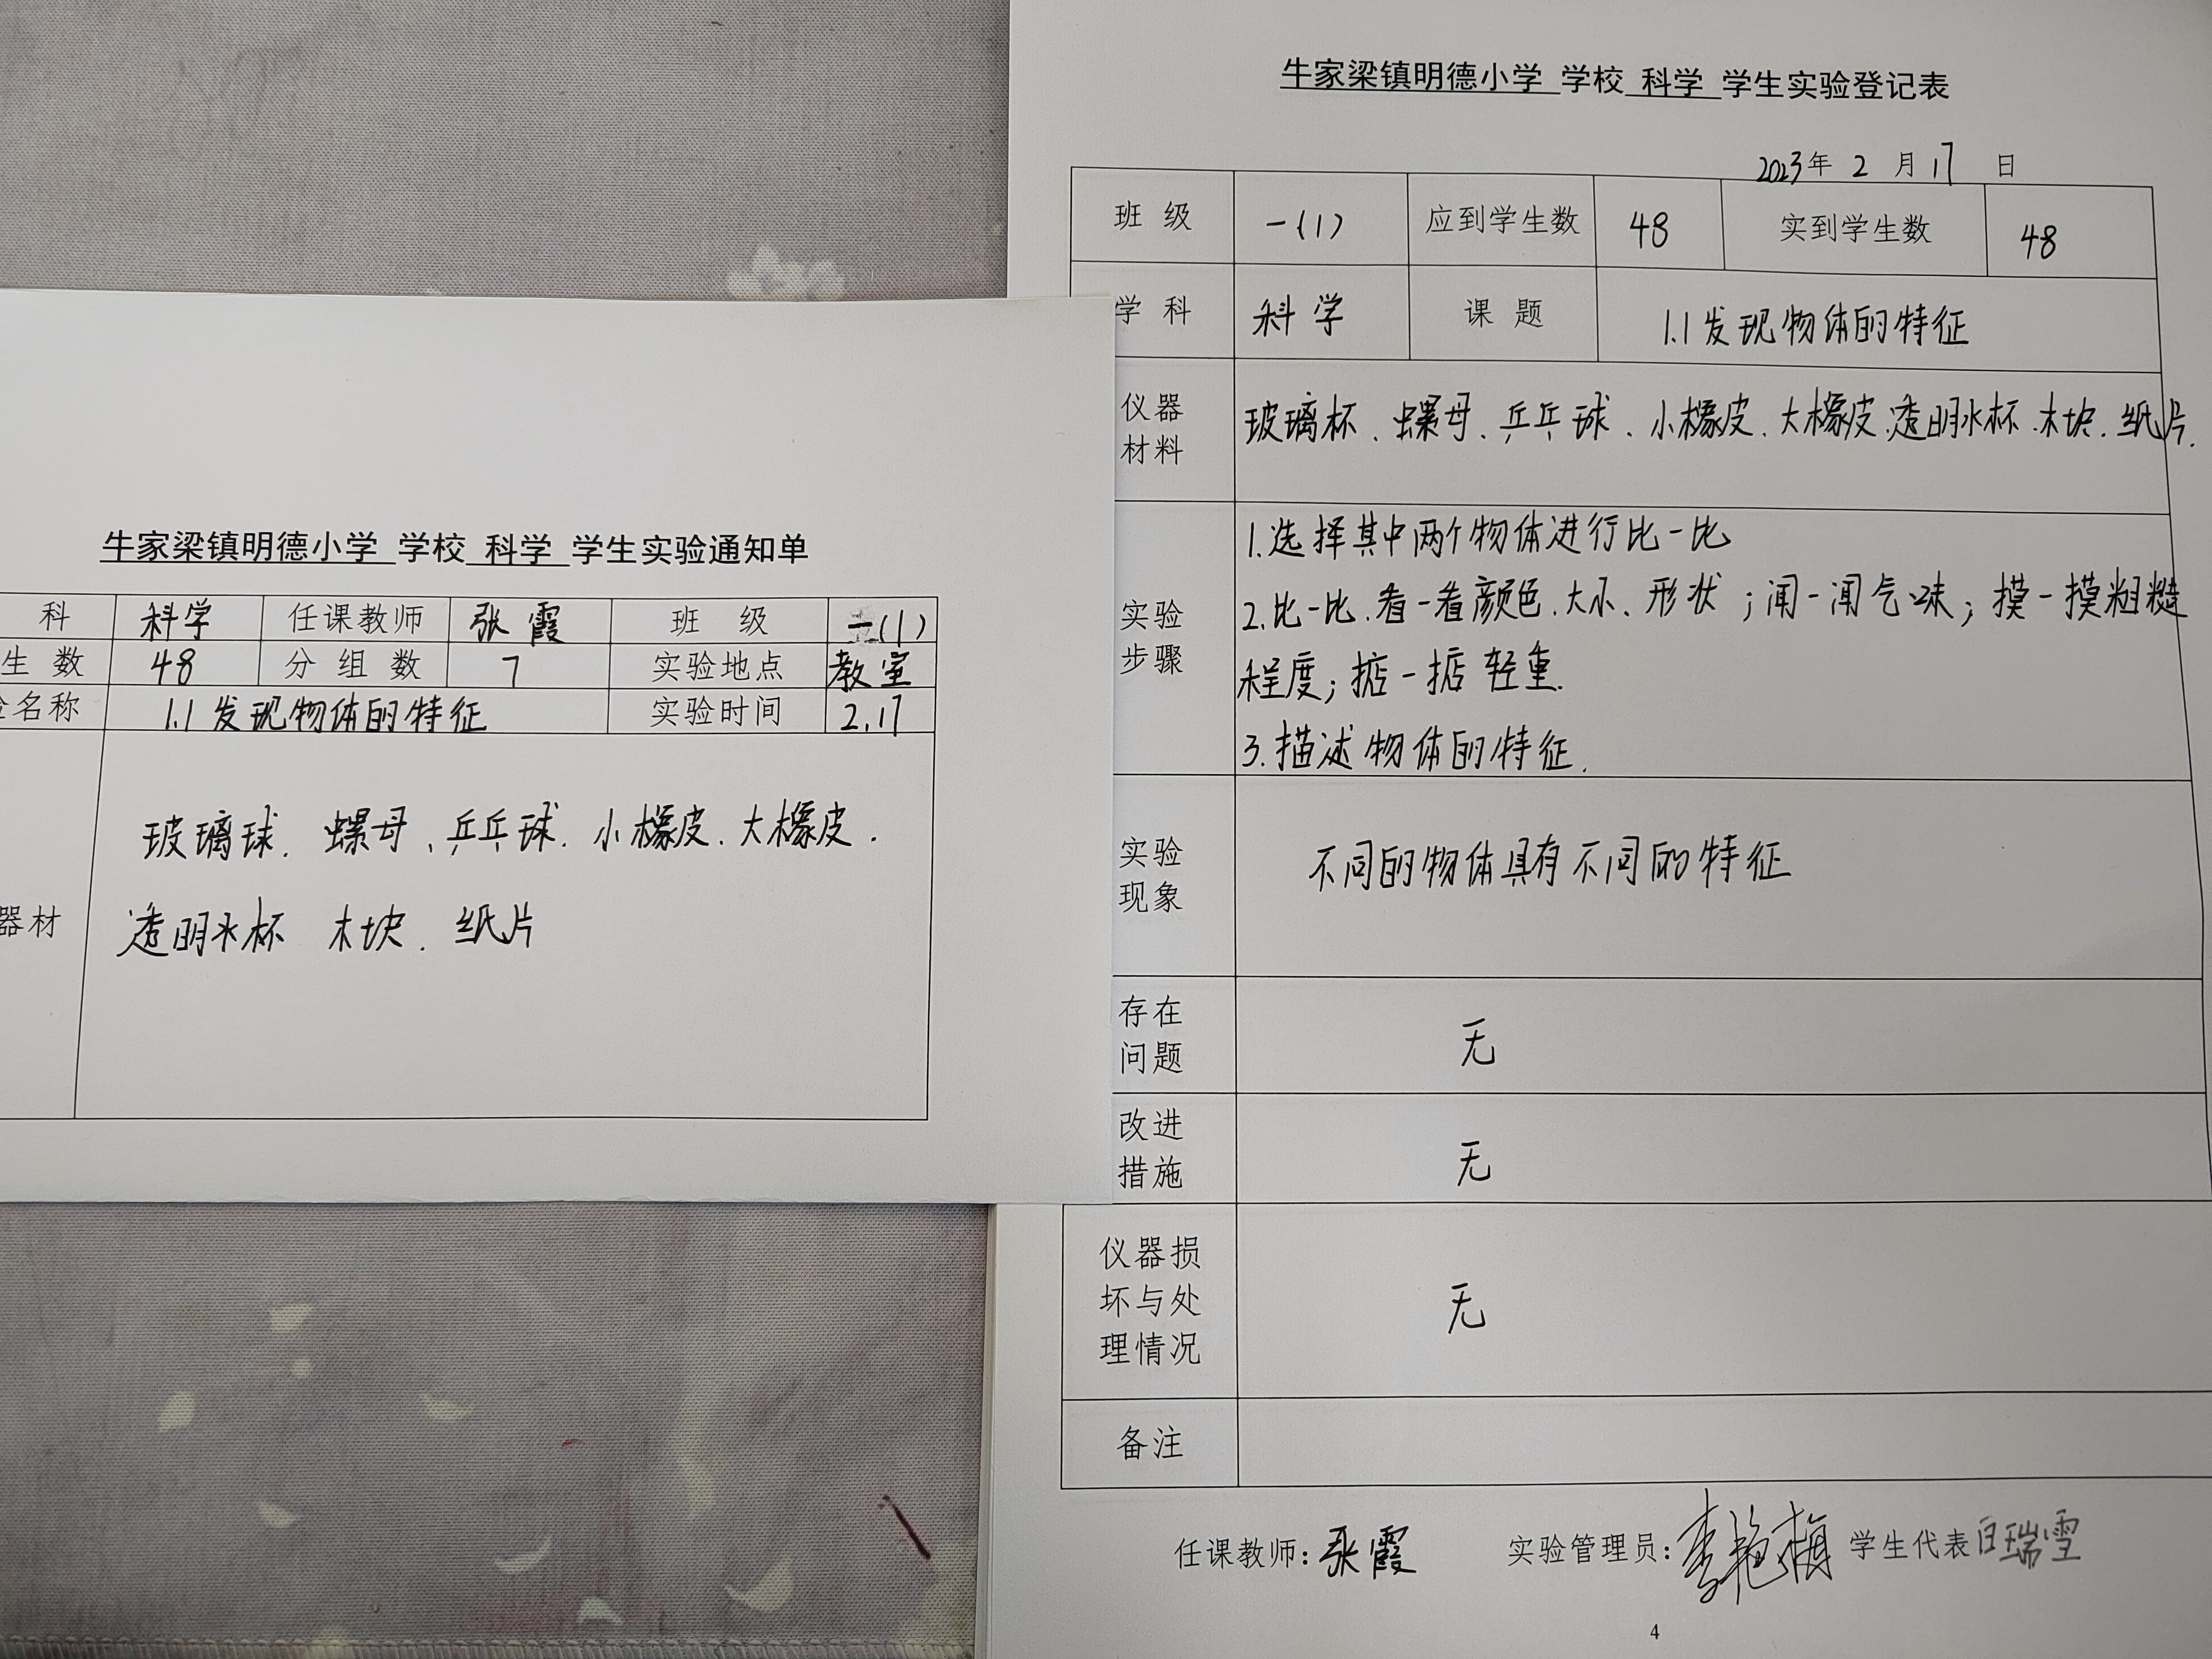 牛家梁镇明德小学 学校 科学 学生实验通知单
科 科学 任课教师 张霞 班 级 一(1)
生 数 48 分 组 数 7 实验地点 教室
名称 1.1发现物体的特征 实验时间 2.17
玻璃球、螺母、乒乓球、小橡皮、大橡皮、
器材
透明水杯 木块、纸片
牛家梁镇明德小学 学校 科学 学生实验登记表
2023年 2 月 17 日
班 级 一(1) 应到学生数 48 实到学生数 48
学 科 科学 课 题 1.1发现物体的特征
仪器
材料
玻璃杯、螺母、乒乓球、小橡皮、大橡皮、透明水杯、木块、纸片.
实验
步骤
1.选择其中两个物体进行比一比
2.比一比.看一看颜色、大小、形状;闻一闻气味;摸一摸粗糙
程度;掂一掂轻重.
3.描述物体的特征.
实验
现象
不同的物体具有不同的特征
存在
问题
无
改进
措施
无
仪器损
坏与处
理情况
无
备注
任课教师:张霞 实验管理员:李艳梅 学生代表白瑞雪
4